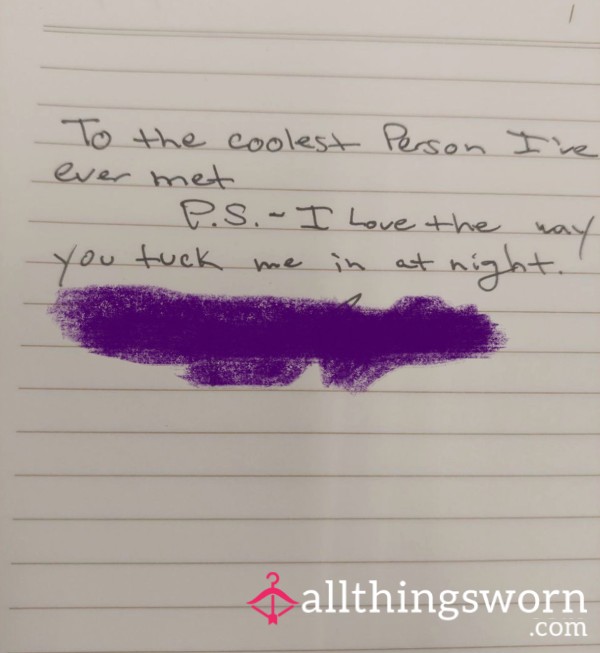 1
To the coolest Person I've
ever met
P.S. - I Love the way
you tuck me in at night.
allthingsworn
.com